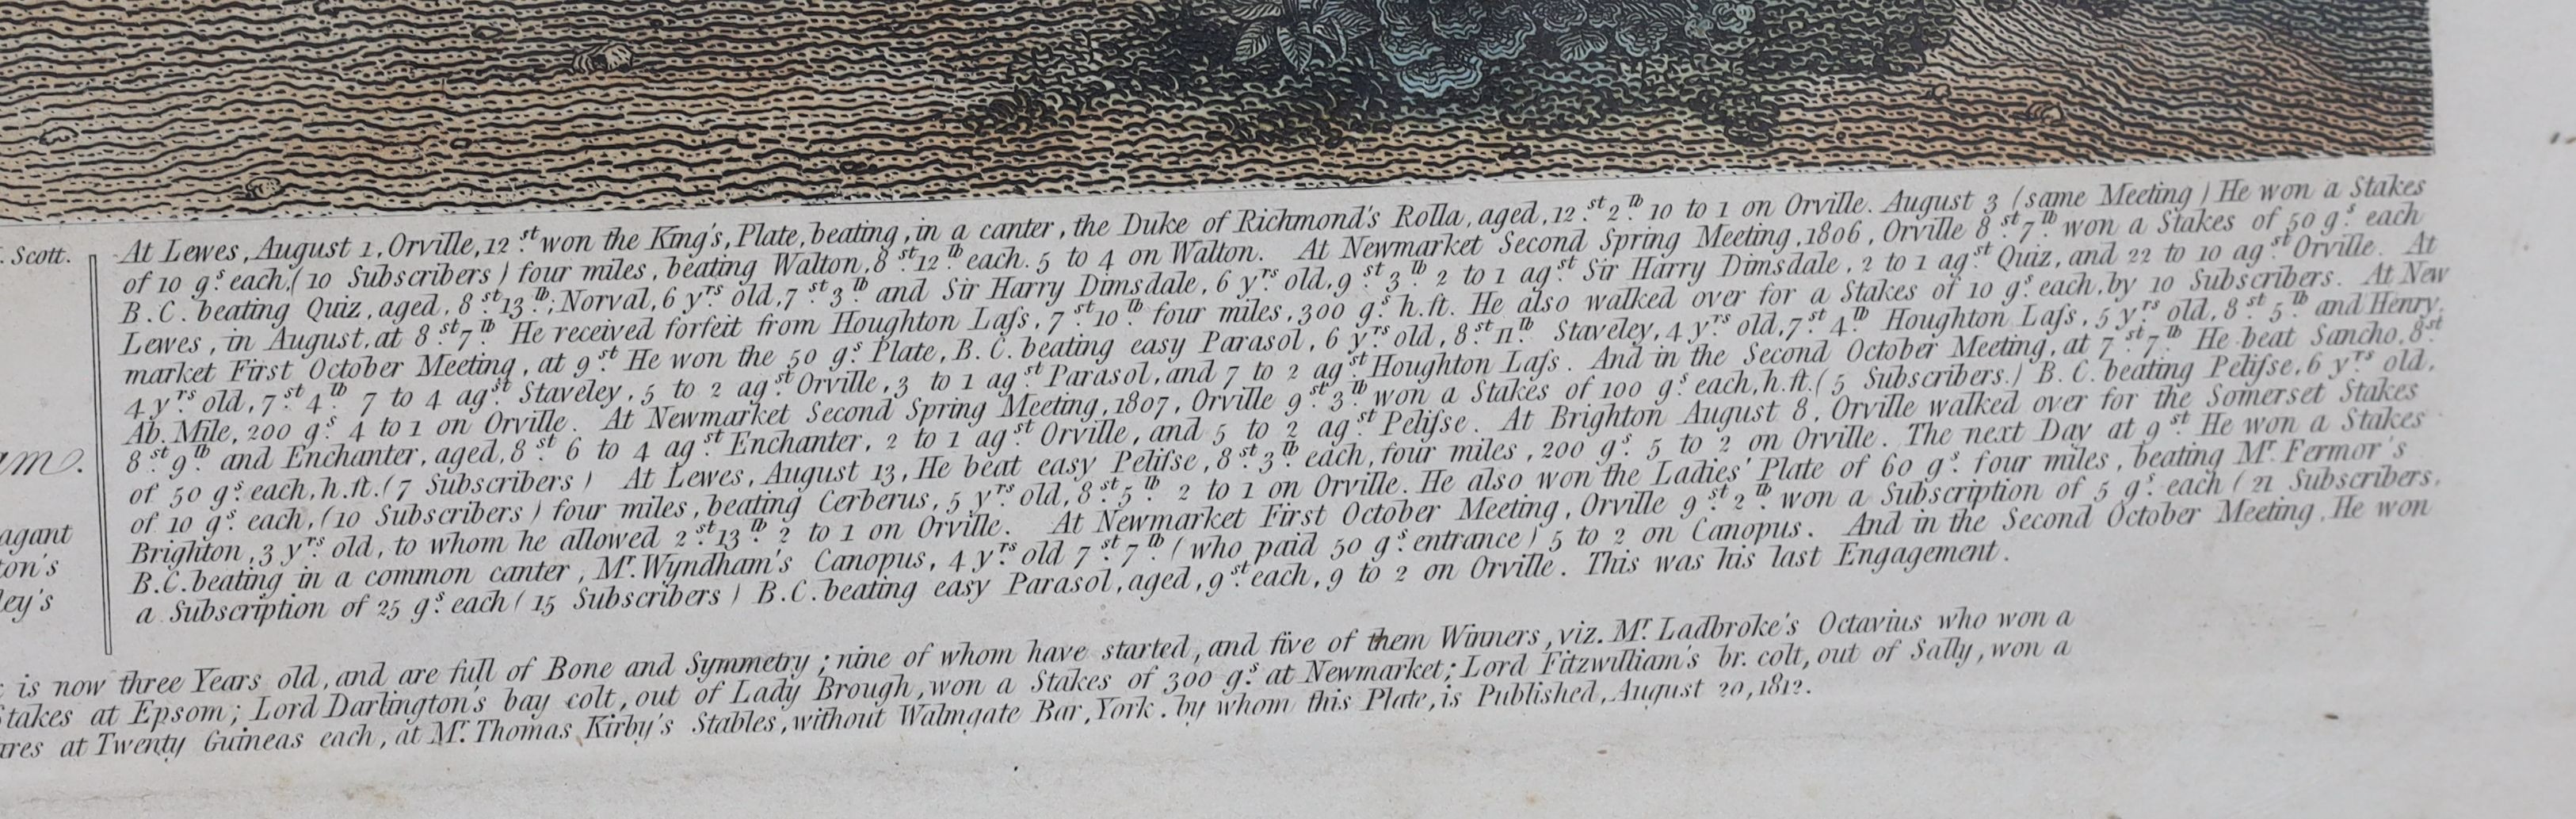 . Scott.
At Lewes, August 1, Orville, 12 st won the King's, Plate, beating, in a canter, the Duke of Richmond's Rolla, aged, 12 st 2 lb 10 to 1 on Orville. August 3 (same Meeting) He won a Stakes
of 10 gs each, (10 Subscribers) four miles, beating Walton, 8 st 12 lb each. 5 to 4 on Walton. At Newmarket Second Spring Meeting, 1806, Orville 8 st 7 lb won a Stakes of 50 gs each
B.C. beating Quiz, aged, 8 st 13 lb; Norval, 6 yrs old, 7 st 3 lb and Sir Harry Dimsdale, 6 yrs old, 9 st 3 lb 2 to 1 agst Sir Harry Dimsdale, 2 to 1 agst Quiz, and 22 to 10 agst Orville. At
Lewes, in August, at 8 st 7 lb He received forfeit from Houghton Laſs, 7 st 10 lb four miles, 300 gs h.ft. He also walked over for a Stakes of 10 gs each, by 10 Subscribers. At New
market First October Meeting, at 9 st He won the 50 gs Plate, B.C. beating easy Parasol, 6 yrs old, 8 st 11 lb Staveley, 4 yrs old, 7 st 4 lb Houghton Laſs, 5 yrs old, 8 st 5 lb and Henry,
4 yrs old, 7 st 4 lb 7 to 4 agst Staveley, 5 to 2 agst Orville, 3 to 1 agst Parasol, and 7 to 2 agst Houghton Laſs. And in the Second October Meeting, at 7 st 7 lb He beat Sancho, 8 st
Ab. Mile, 200 gs 4 to 1 on Orville. At Newmarket Second Spring Meeting, 1807, Orville 9 st 3 lb won a Stakes of 100 gs each, h.ft. (5 Subscribers.) B.C. beating Peliſse, 6 yrs old,
8 st 9 lb and Enchanter, aged, 8 st 6 to 4 agst Enchanter, 2 to 1 agst Orville, and 5 to 2 agst Peliſse. At Brighton August 8, Orville walked over for the Somerset Stakes
of 50 gs each, h.ft. (7 Subscribers) At Lewes, August 13, He beat easy Peliſse, 8 st 3 lb each, four miles, 200 gs 5 to 2 on Orville. The next Day at 9 st He won a Stakes
of 10 gs each, (10 Subscribers) four miles, beating Cerberus, 5 yrs old, 8 st 5 lb 2 to 1 on Orville. He also won the Ladies' Plate of 60 gs four miles, beating Mr. Fermor's
Brighton, 3 yrs old, to whom he allowed 2 st 13 lb 2 to 1 on Orville. At Newmarket First October Meeting, Orville 9 st 2 lb won a Subscription of 5 gs each (21 Subscribers,
B.C. beating in a common canter, Mr. Wyndham's Canopus, 4 yrs old 7 st 7 lb (who paid 50 gs entrance) 5 to 2 on Canopus. And in the Second October Meeting, He won
a Subscription of 25 gs each (15 Subscribers) B.C. beating easy Parasol, aged, 9 st each, 9 to 2 on Orville. This was his last Engagement.
am.
agant
ton's
ley's
is now three Years old, and are full of Bone and Symmetry; nine of whom have started, and five of them Winners, viz. Mr. Ladbroke's Octavius who won a
Stakes at Epsom; Lord Darlington's bay colt, out of Lady Brough, won a Stakes of 300 gs at Newmarket; Lord Fitzwilliam's br. colt, out of Sally, won a
ares at Twenty Guineas each, at Mr. Thomas Kirby's Stables, without Walmgate Bar, York. by whom this Plate, is Published, August 20, 1812.